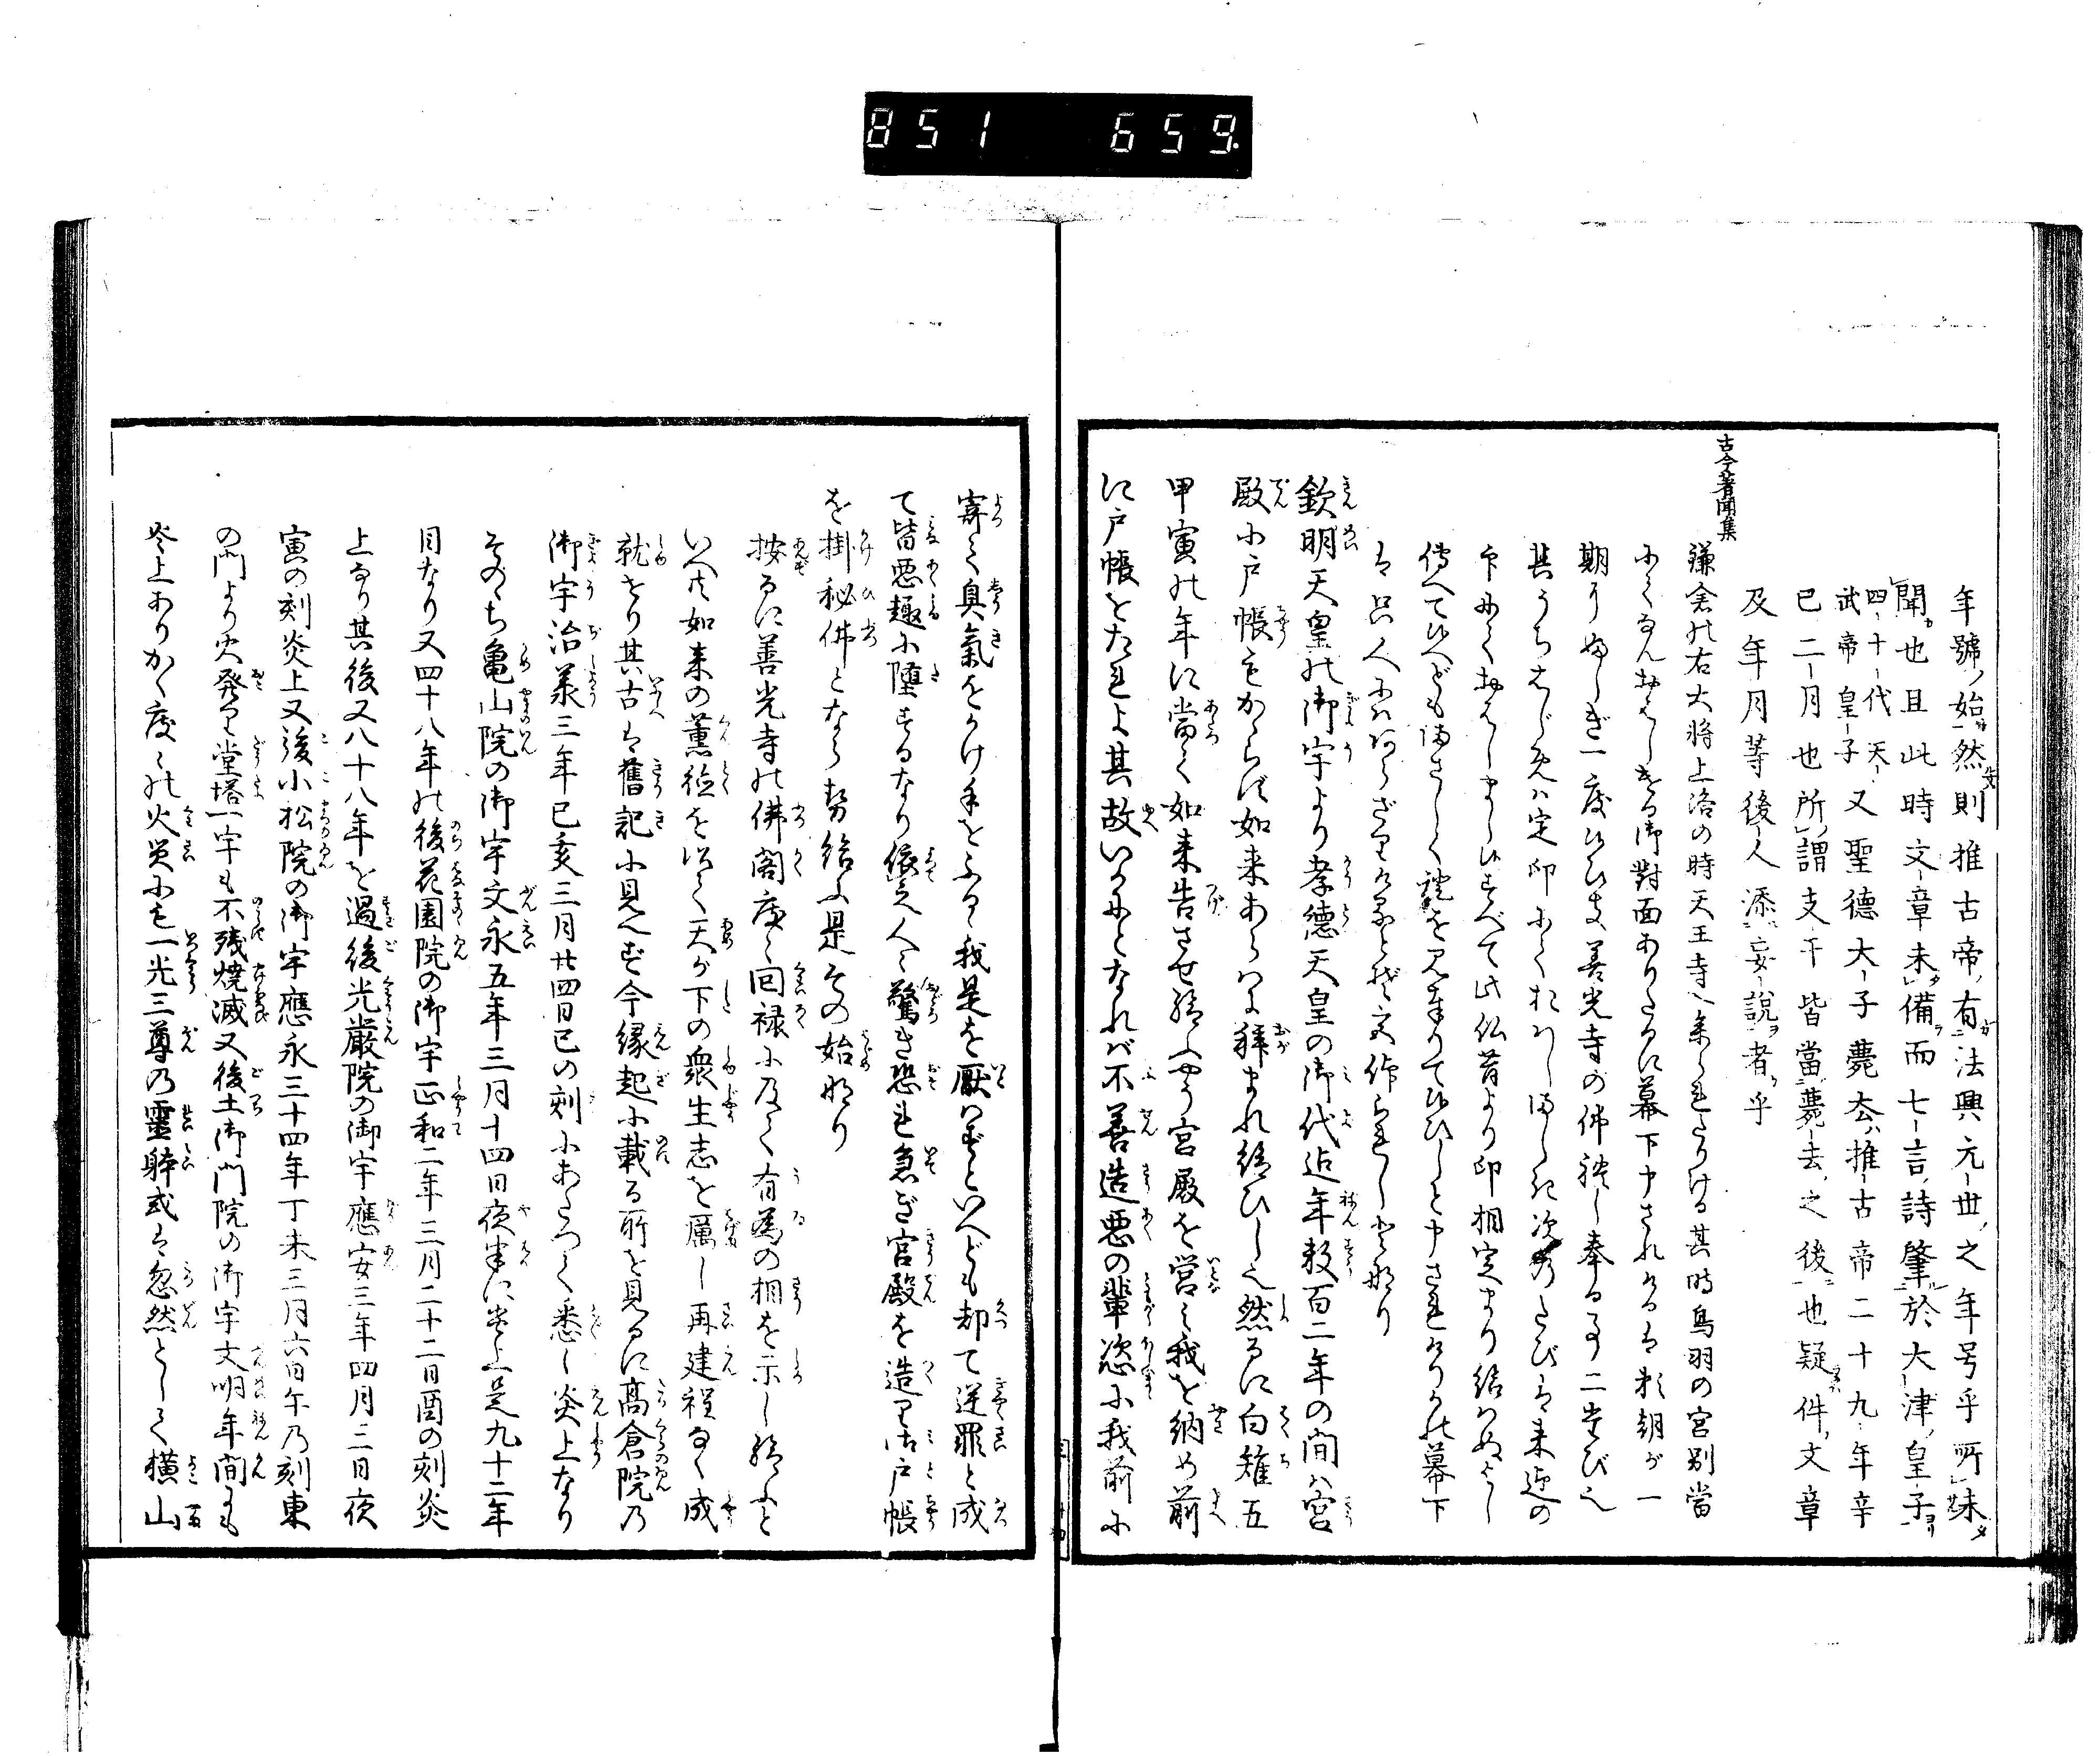 851 659.
年號ノ始然則推古帝ノ有法興元世之年号乎所未
聞也且此時文章未備而七言詩肇於大津皇子
四十代天武帝皇子又聖德大子薨去推古帝二十九年辛
巳二月也所謂支干皆當薨去之後也疑件文章
及年月等後人添妄說者乎
古今著聞集
鎌倉の右大将上洛の時天王寺へ参られたりける其時鳥羽の宮別當
にておはしける御對面ありたるに幕下申されけるは頼朝が一
期にふしぎ一度候ひき善光寺の佛禮し奉る事二たび也
其うちはじめは定印にておはしましき次のたびは来迎の
印にておはしまし候すべて此仏昔より印相定まり給はぬよし
傳へて候へどもまさしく證を見奉りて候ひしと申されけりかの幕下
は只人にはあらざりけるとぞ文作られしと也
欽明天皇の御宇より孝德天皇の御代迄年数百二年の間は宮
殿に戸帳もかゝらず如来あらはに拜まれ給ひし也然るに白雉五
甲寅の年に當て如来告させ給ふやう宮殿を営み我を納め前
に戸帳をたれよ其故いかにとなれば不善造悪の輩恣に我前に
寄て臭氣をかけ手をふる我是を厭はずといへども却て逆罪と成
て皆悪趣に墮するなり依之人々驚き恐れ急ぎ宮殿を造り御戸帳
を掛秘佛となし奉給ふ是その始なり
按るに善光寺の佛閣度々回禄に及て有為の相を示し給ふと
いへ共如来の薫徳を以て天が下の衆生志を厲し再建程なく成
就せり其古は舊記に見へず今縁起に載る所を見るに高倉院乃
御宇治承三年己亥三月廿四日巳の刻にあたつて悉く炎上なり
そのゝち亀山院の御宇文永五年三月十四日夜半に炎上是九十二年
目なり又四十八年の後花園院の御宇正和二年三月二十二日酉の刻炎
上なり其後又八十八年を過後光厳院の御宇應安三年四月二日夜
寅の刻炎上又後小松院の御宇應永三十四年丁未三月六日午乃刻東
の門より火発り堂塔一宇も不残焼滅又後土御門院の御宇文明年間にも
炎上ありかく度々の火災にも一光三尊の靈躰或は忽然として横山